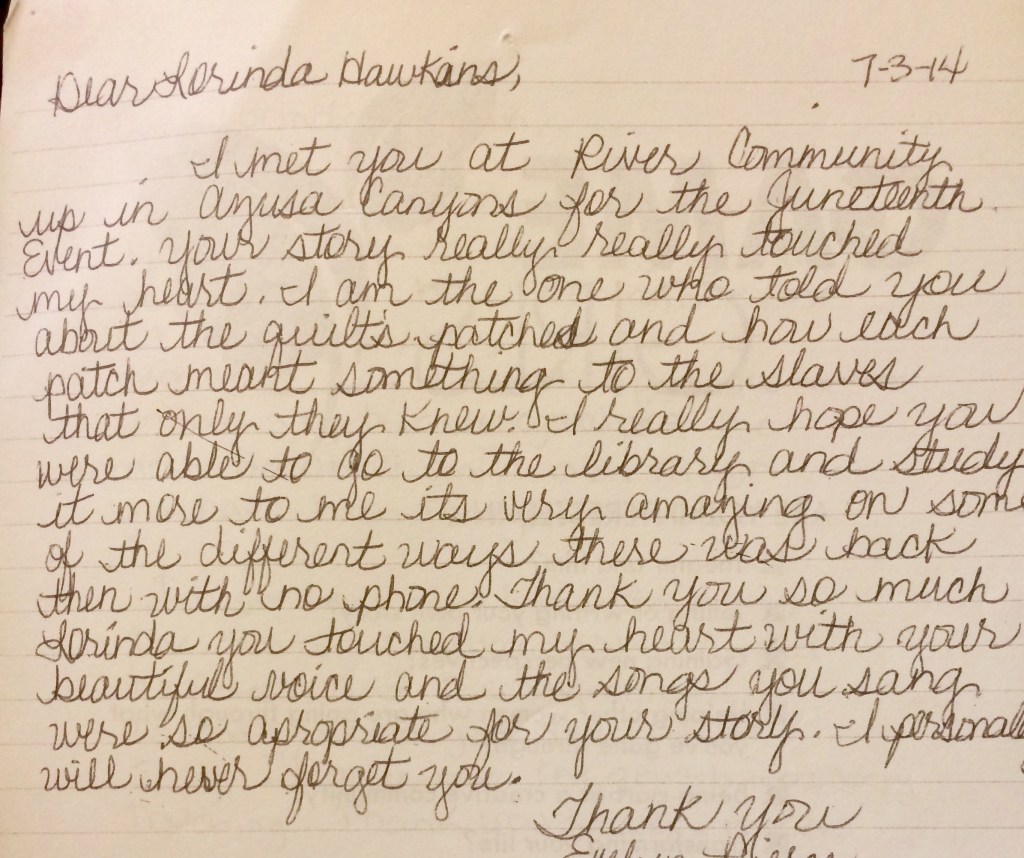 Dear Lorinda Hawkins, 7-3-14
I met you at River Community
up in Azusa Canyons for the Juneteenth
Event. Your story really really touched
my heart. I am the one who told you
about the quilt's patched and how each
patch meant something to the slaves
that only they knew. I really hope you
were able to go to the library and study
it more to me its very amazing on some
of the different ways there was back
then with no phone. Thank you so much
Lorinda you touched my heart with your
beautiful voice and the songs you sang
were so apropriate for your story. I personal
will never forget you.
Thank you